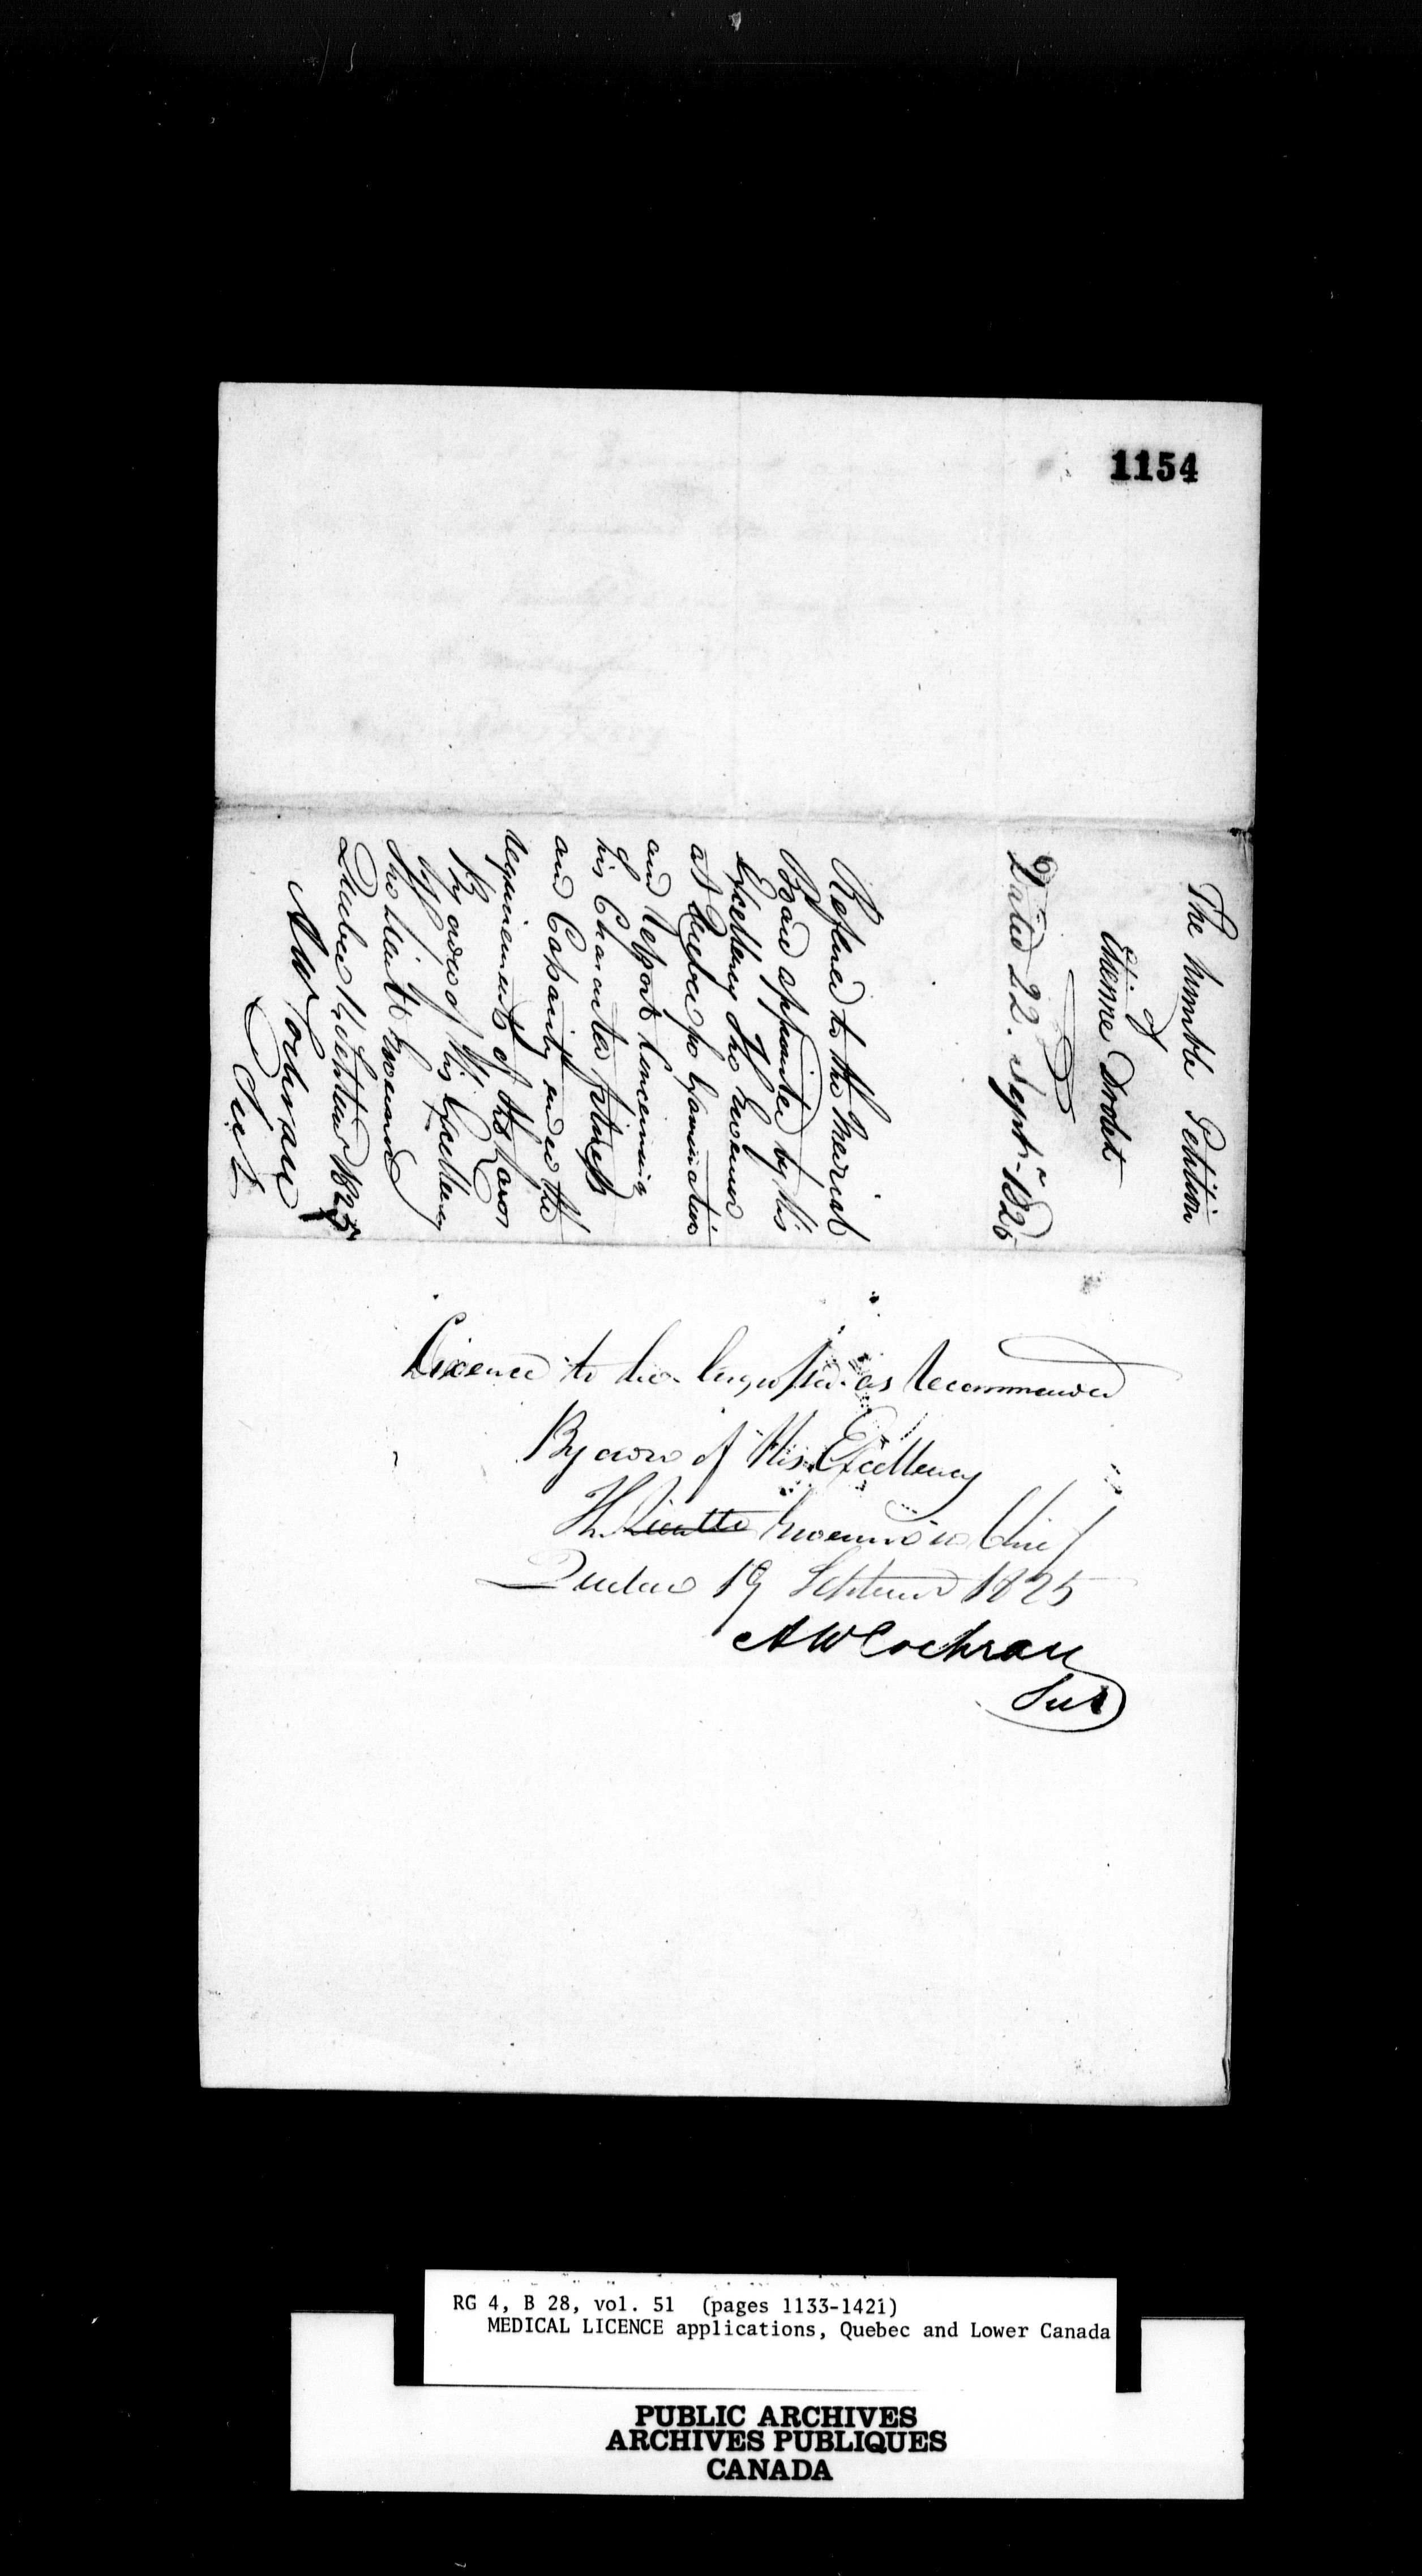 1154
The humble Petition
of
Etienne Drolet
Dated 22. Septr. 1825
Refered to the Medical
Board appointed by His
Excellency The Governor
at Quebec for Examination
and Report concerning
his Character fitness
and Capacity under the
requirements of the Laws
By order of His Excellency
The Lieut. Governor
Quebec September 1825
AW Cochrane
Sec
Licence to be as recommended
By order of His Excellency
The Governor in Chief
Quebec 19 September 1825
AW Cochran
Sec
RG 4, B 28, vol. 51 (pages 1133-1421)
MEDICAL LICENCE applications, Quebec and Lower Canada
PUBLIC ARCHIVES
ARCHIVES PUBLIQUES
CANADA